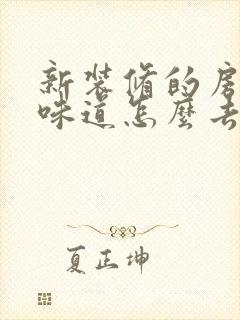 新装修的房
味道怎麽去
夏正坤